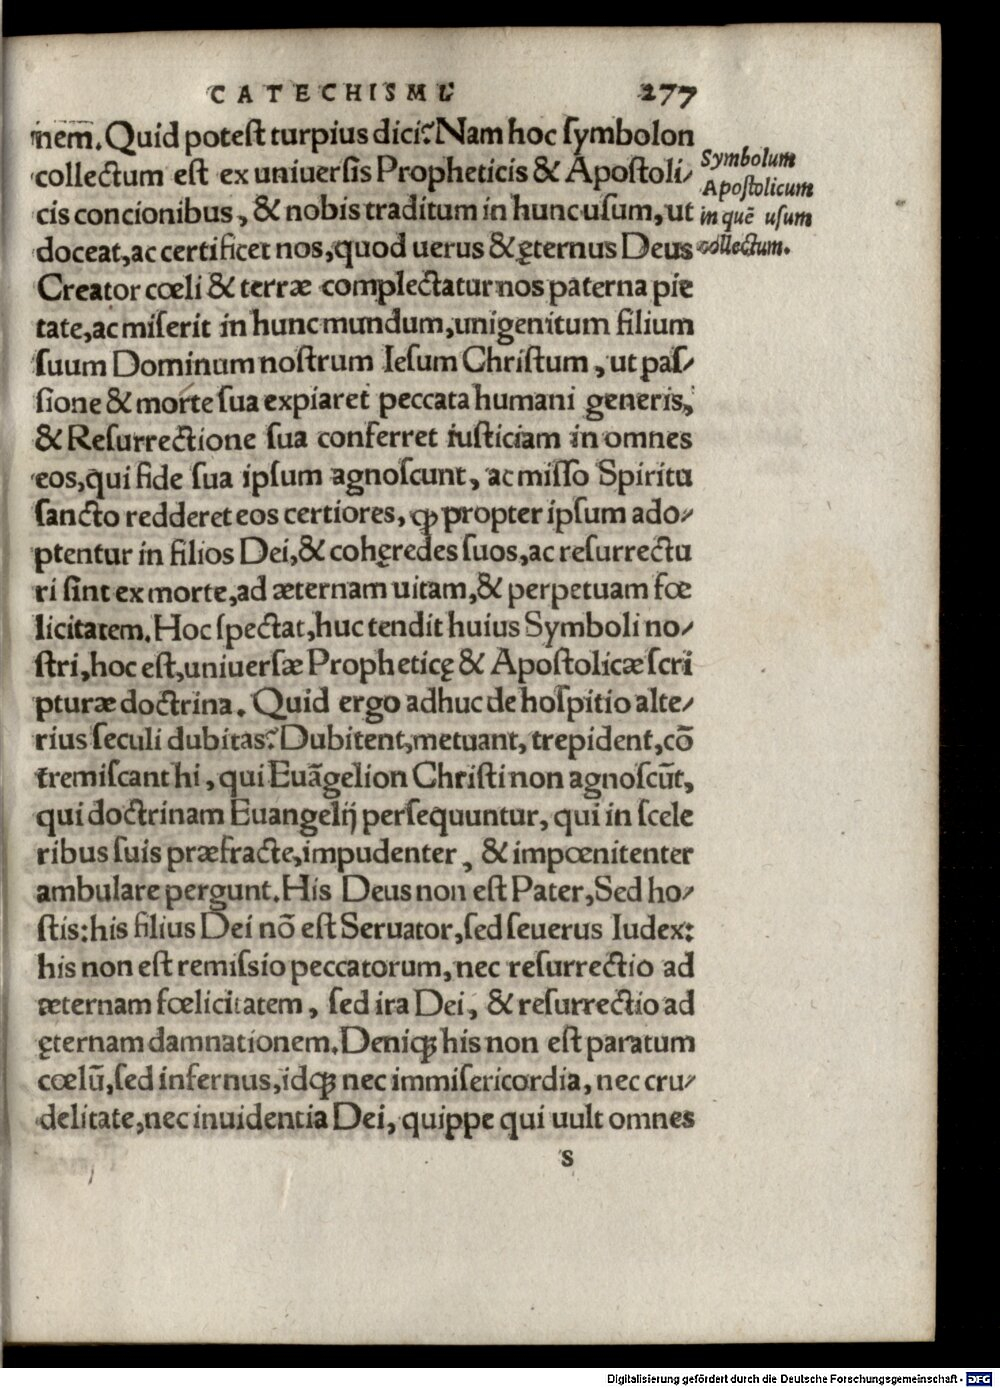 CATECHISMV 277
nem̅. Quid potest turpius dici? Nam hoc ſymbolon
collectum est ex uniuerſis Propheticis & Apoſtoli/
cis concionibus, & nobis traditum in hunc uſum, ut
doceat, ac certificet nos, quod uerus & ęternus Deus
Creator cœli & terræ complectatur nos paterna pie
tate, ac miſerit in hunc mundum, unigenitum filium
ſuum Dominum noſtrum Ieſum Chriſtum, ut paſ/
ſione & morte ſua expiaret peccata humani generis,
& Reſurrectione ſua conferret iuſticiam in omnes
eos, qui fide ſua ipſum agnoſcunt, ac miſſo Spiritu
ſancto redderet eos certiores, ꝙ propter ipſum ado/
ptentur in filios Dei, & cohęredes ſuos, ac reſurrectu
ri ſint ex morte, ad æternam uitam, & perpetuam fœ
licitatem. Hoc ſpectat, huc tendit huius Symboli no/
ſtri, hoc eſt, uniuerſæ Propheticę & Apoſtolicæ ſcri
pturæ doctrina. Quid ergo adhuc de hoſpitio alte/
rius ſeculi dubitas? Dubitent, metuant, trepident, cō
tremiſcant hi, qui Euāgelion Chriſti non agnoſcūt,
qui doctrinam Euangelij perſequuntur, qui in ſcele
ribus ſuis præfracte, impudenter, & impœnitenter
ambulare pergunt. His Deus non eſt Pater, Sed ho/
ſtis: his filius Dei nō eſt Seruator, ſed ſeuerus Iudex:
his non eſt remiſsio peccatorum, nec reſurrectio ad
æternam fœlicitatem, ſed ira Dei, & reſurrectio ad
ęternam damnationem. Deniqꝫ his non eſt paratum
cœlū, ſed infernus, idqꝫ nec immiſericordia, nec cru/
delitate, nec inuidentia Dei, quippe qui uult omnes
S
Symbolum
Apoſtolicum
in quē uſum
collectum.
Digitalisierung gefördert durch die Deutsche Forschungsgemeinschaft - DFG